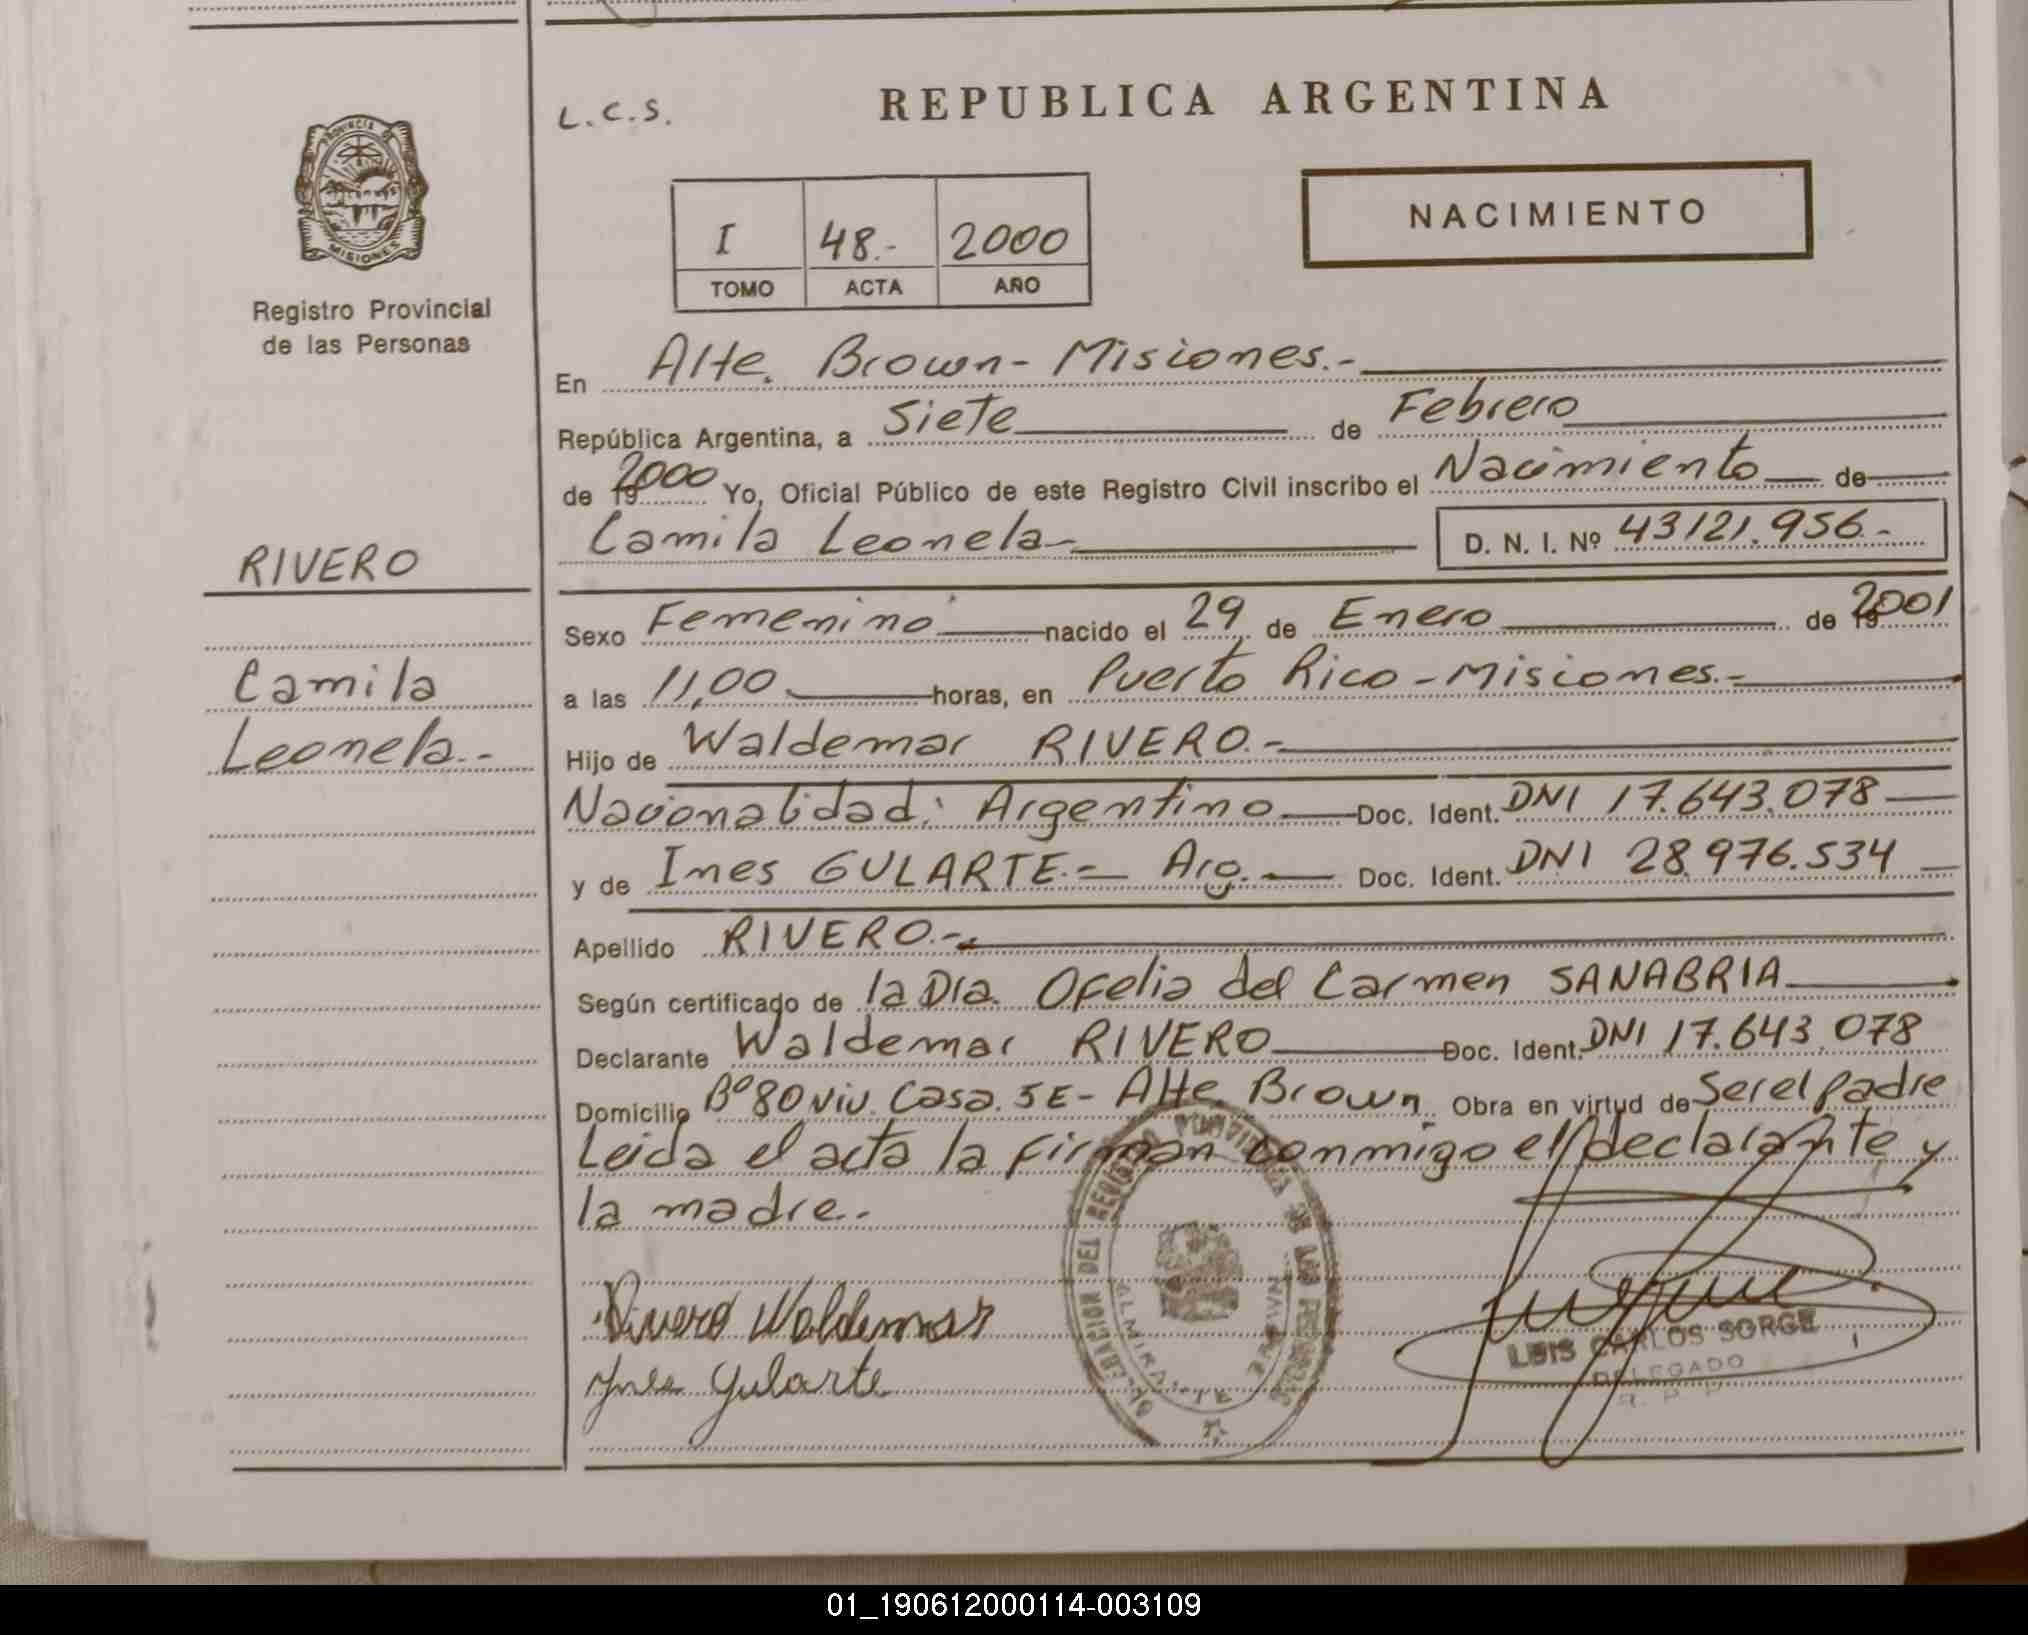 L.C.S.
REPUBLICA ARGENTINA
PROVINCIA DE
MISIONES
Registro Provincial
de las Personas
I 48.- 2000
TOMO ACTA AÑO
NACIMIENTO
En Alte. Brown - Misiones.-
República Argentina, a Siete de Febrero
de 19 2000 Yo, Oficial Público de este Registro Civil inscribo el Nacimiento de
Camila Leonela D. N. I. Nº 43121.956.-
RIVERO
Camila
Leonela.-
Sexo Femenino nacido el 29 de Enero de 19 2001
a las 11,00 horas, en Puerto Rico - Misiones.-
Hijo de Waldemar RIVERO.-
Nacionalidad: Argentino Doc. Ident. DNI 17.643.078
y de Ines GULARTE.- Arg. Doc. Ident. DNI 28.976.534
Apellido RIVERO.-
Según certificado de la Dra. Ofelia del Carmen SANABRIA
Declarante Waldemar RIVERO Doc. Ident. DNI 17.643.078
Domicilio Bº 80 viv. Casa. 5E - Alte. Brown Obra en virtud de Ser el padre
Leida el acta la firman conmigo el declarante y
la madre.-
Rivero Waldemar
Ines Gularte
DELEGACION DEL REGISTRO PROVINCIAL DE LAS PERSONAS
ALMIRANTE BROWN
LUIS CARLOS SORGE
DELEGADO
R. P. P.
01_190612000114-003109